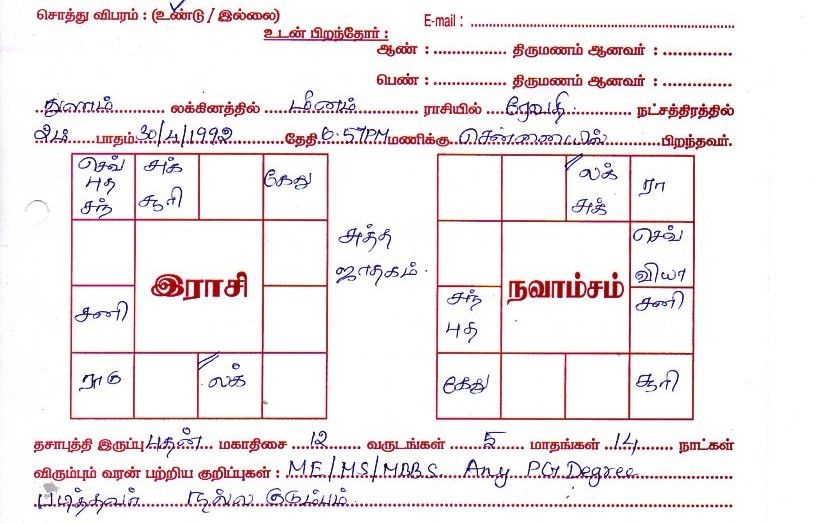 சொத்து விபரம் : (உண்டு / இல்லை)
E-mail :
உடன் பிறந்தோர் :
ஆண் : திருமணம் ஆனவர் :
பெண் : திருமணம் ஆனவர் :
துலாம் லக்கினத்தில் மீனம் ராசியில் ரேவதி நட்சத்திரத்தில்
2ம் பாதம் 30/4/1992 தேதி 6.57PM மணிக்கு சென்னையில் பிறந்தவர்.
செவ் புத சந்
சுக் சூரி
கேது
சுத்த ஜாதகம்.
இராசி
சனி
ராகு
லக்
லக் சுக்
ரா
செவ் வியா
நவாம்சம்
சந் புத
சனி
கேது
சூரி
தசாபுத்தி இருப்பு புதன் மகாதிசை 12 வருடங்கள் 5 மாதங்கள் 14 நாட்கள்
விரும்பும் வரன் பற்றிய குறிப்புகள் : ME/MS/MBBS Any PG Degree
படித்தவர் நல்ல குடும்பம்.